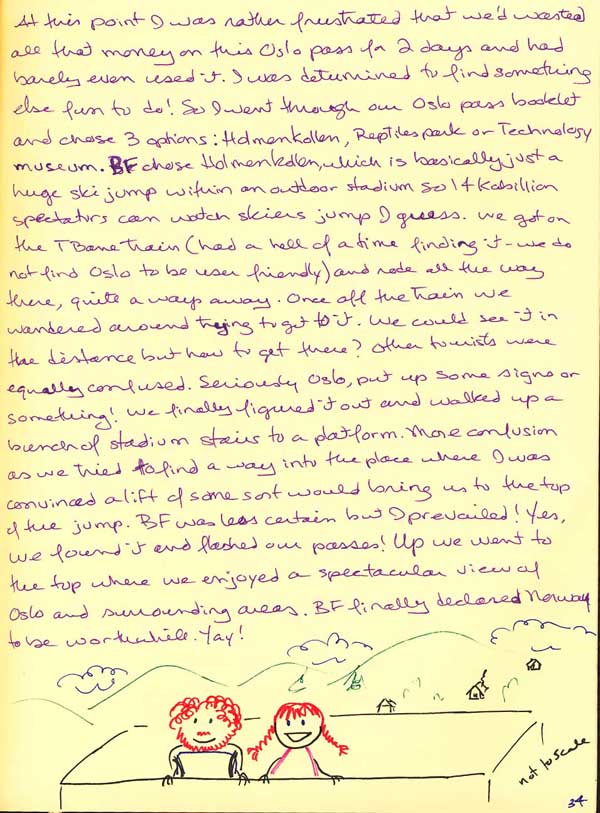 At this point I was rather frustrated that we'd wasted
all that money on this Oslo pass for 2 days and had
barely even used it. I was determined to find something
else fun to do! So I went through our Oslo pass booklet
and chose 3 options: Holmenkollen, Reptilespark or Technology
museum. BF chose Holmenkollen, which is basically just a
huge ski jump within an outdoor stadium so 14 Kabillion
spectators can watch skiers jump I guess. We got on
the TBane train (had a hell of a time finding it - we do
not find Oslo to be user friendly) and rode all the way
there, quite a ways away. Once off the train we
wandered around trying to get to it. We could see it in
the distance but how to get there? Other tourists were
equally confused. Seriously Oslo, put up some signs or
something! We finally figured it out and walked up a
bunch of stadium stairs to a platform. More confusion
as we tried to find a way into the place where I was
convinced a lift of some sort would bring us to the top
of the jump. BF was less certain but I prevailed! Yes,
we found it and flashed our passes! Up we went to
the top where we enjoyed a spectacular view of
Oslo and surrounding areas. BF finally declared Norway
to be worthwhile. Yay!
not to scale
34